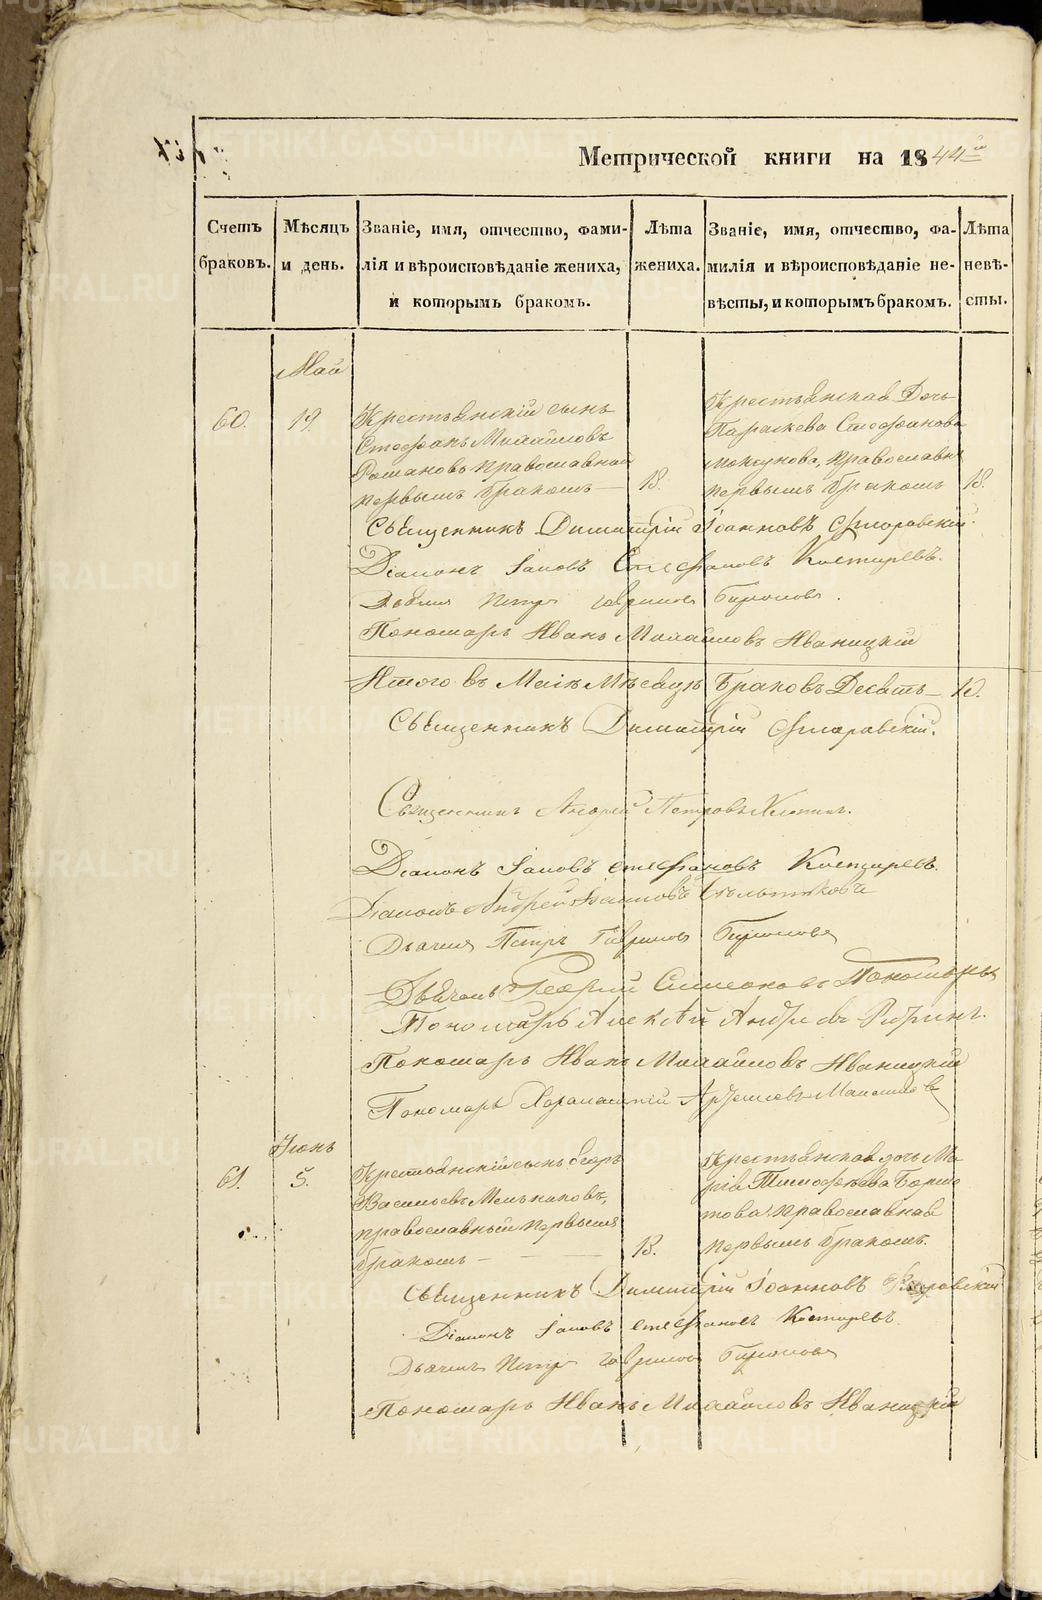 Метрической книги на 1844й
Счетъ браковъ.
Мѣсяцъ и день.
Званіе, имя, отчество, фами-
лія и вѣроисповѣданіе жениха,
и которымъ бракомъ.
Лѣта жениха.
Званіе, имя, отчество, фа-
милія и вѣроисповѣданіе не-
вѣсты, и которымъ бракомъ.
Лѣта невѣ-
сты.
Май
60.
19
Крестьянскій сынъ
Стефанъ Михайловъ
Романовъ православной
первымъ бракомъ
18.
Крестьянская дочь
Параскева Стефанова
православн
первымъ бракомъ
18.
Священникъ Димитрій Іоанновъ
Діаконъ Іаковъ Стефановъ Костыревъ.
Дьячекъ Петръ Гавриловъ
Пономарь Иванъ Михайловъ Иваницкій
Итого въ Маіѣ Мѣсяцѣ Браковъ Десять 10.
Священникъ Димитрій
Священникъ Андрей Петровъ
Діаконъ Іаковъ Стефановъ Костыревъ.
Діаконъ Андрей
Дьячекъ Петръ Гавриловъ
Дьячекъ Георгій Симеоновъ Пономаревъ
Пономарь Алексѣй Андреевъ
Пономарь Иванъ Михайловъ Иваницкій
Пономарь Харалампій
Іюнь
61.
5.
Крестьянскій сынъ Егоръ
Васильевъ Мельниковъ,
православный первымъ
бракомъ
18.
Крестьянская дочь Ма-
рія Тимофѣева
православная
первымъ бракомъ.
Священникъ Димитрій Іоанновъ
Діаконъ Іаковъ Стефановъ Костыревъ.
Дьячекъ Петръ Гавриловъ
Пономарь Иванъ Михайловъ Иваницкій
METRIKI.GASO-URAL.RU